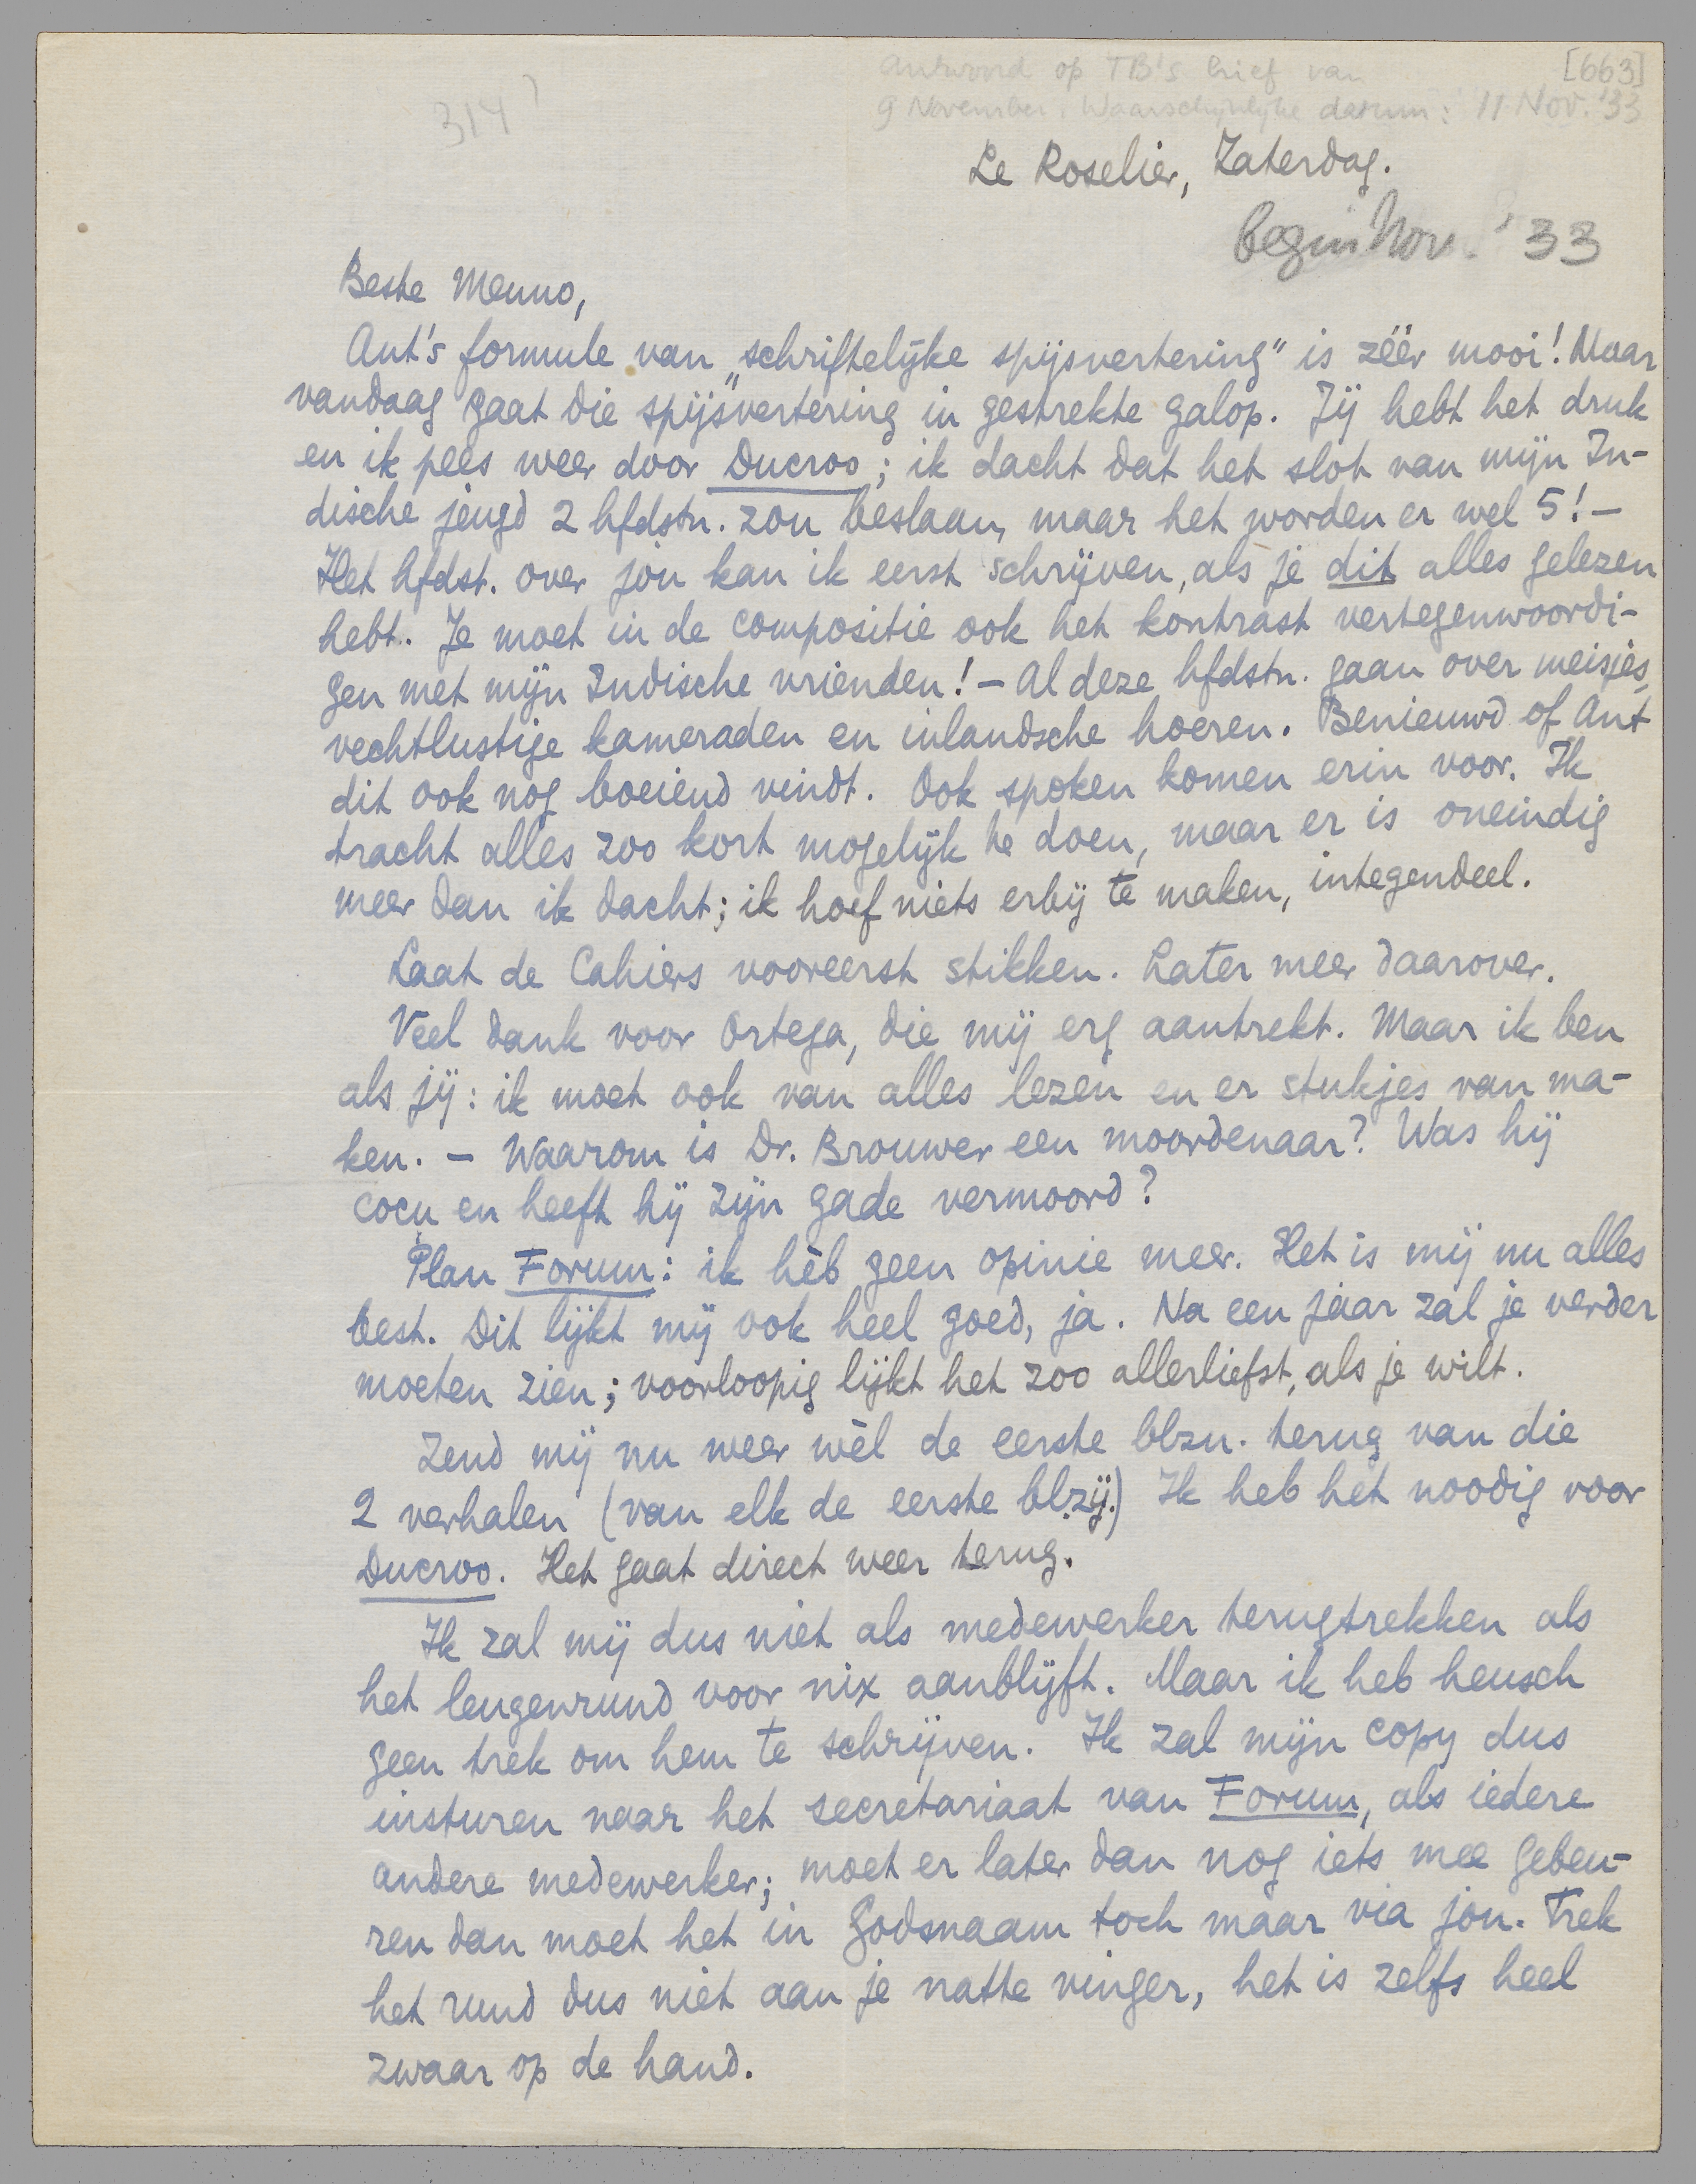 Antwoord op TB's brief van [663]
9 November. Waarschijnlijke datum: 11 Nov. '33
314?
Le Roselier, Zaterdag.
begin Nov. '33
Beste Menno,
Ant's formule van „schriftelijke spijsvertering" is zéér mooi! Maar
vandaag gaat die spijsvertering in gestrekte galop. Jij hebt het druk
en ik pees weer door Ducroo; ik dacht dat het slot van mijn In-
dische jeugd 2 hfdstn. zou beslaan, maar het worden er wel 5! –
Het hfdst. over jòu kan ik eerst schrijven, als je dit alles gelezen
hebt. Je moet in de compositie ook het kontrast vertegenwoordi-
gen met mijn Indische vrienden! – Al deze hfdstn. gaan over meisjes,
vechtlustige kameraden en inlandsche hoeren. Benieuwd of Ant
dit ook nog boeiend vindt. Ook spoken komen erin voor. Ik
tracht alles zoo kort mogelijk te doen, maar er is oneindig
meer dan ik dacht; ik hoef niets erbij te maken, integendeel.
Laat de Cahiers vooreerst stikken. Later meer daarover.
Veel dank voor Ortega, die mij erg aantrekt. Maar ik ben
als jij: ik moet ook van alles lezen en er stukjes van ma-
ken. – Waarom is Dr. Brouwer een moordenaar? Was hij
cocu en heeft hij zijn gade vermoord?
Plan Forum: ik hèb geen opinie meer. Het is mij nu alles
best. Dit lijkt mij ook heel goed, ja. Na een jaar zal je verder
moeten zien; voorloopig lijkt het zoo allerliefst, als je wilt.
Zend mij nu weer wèl de eerste blzn. terug van die
2 verhalen (van elk de eerste blzij.) Ik heb het noodig voor
Ducroo. Het gaat direct weer terug.
Ik zal mij dus niet als medewerker terugtrekken als
het leugenrund voor nix aanblijft. Maar ik heb heusch
geen trek om hem te schrijven. Ik zal mijn copy dus
insturen naar het secretariaat van Forum, als iedere
andere medewerker; moet er later dan nog iets mee gebeu-
ren dan moet het in Godsnaam toch maar via jou. Trek
het rund dus niet aan je natte vinger, het is zelfs heel
zwaar op de hand.